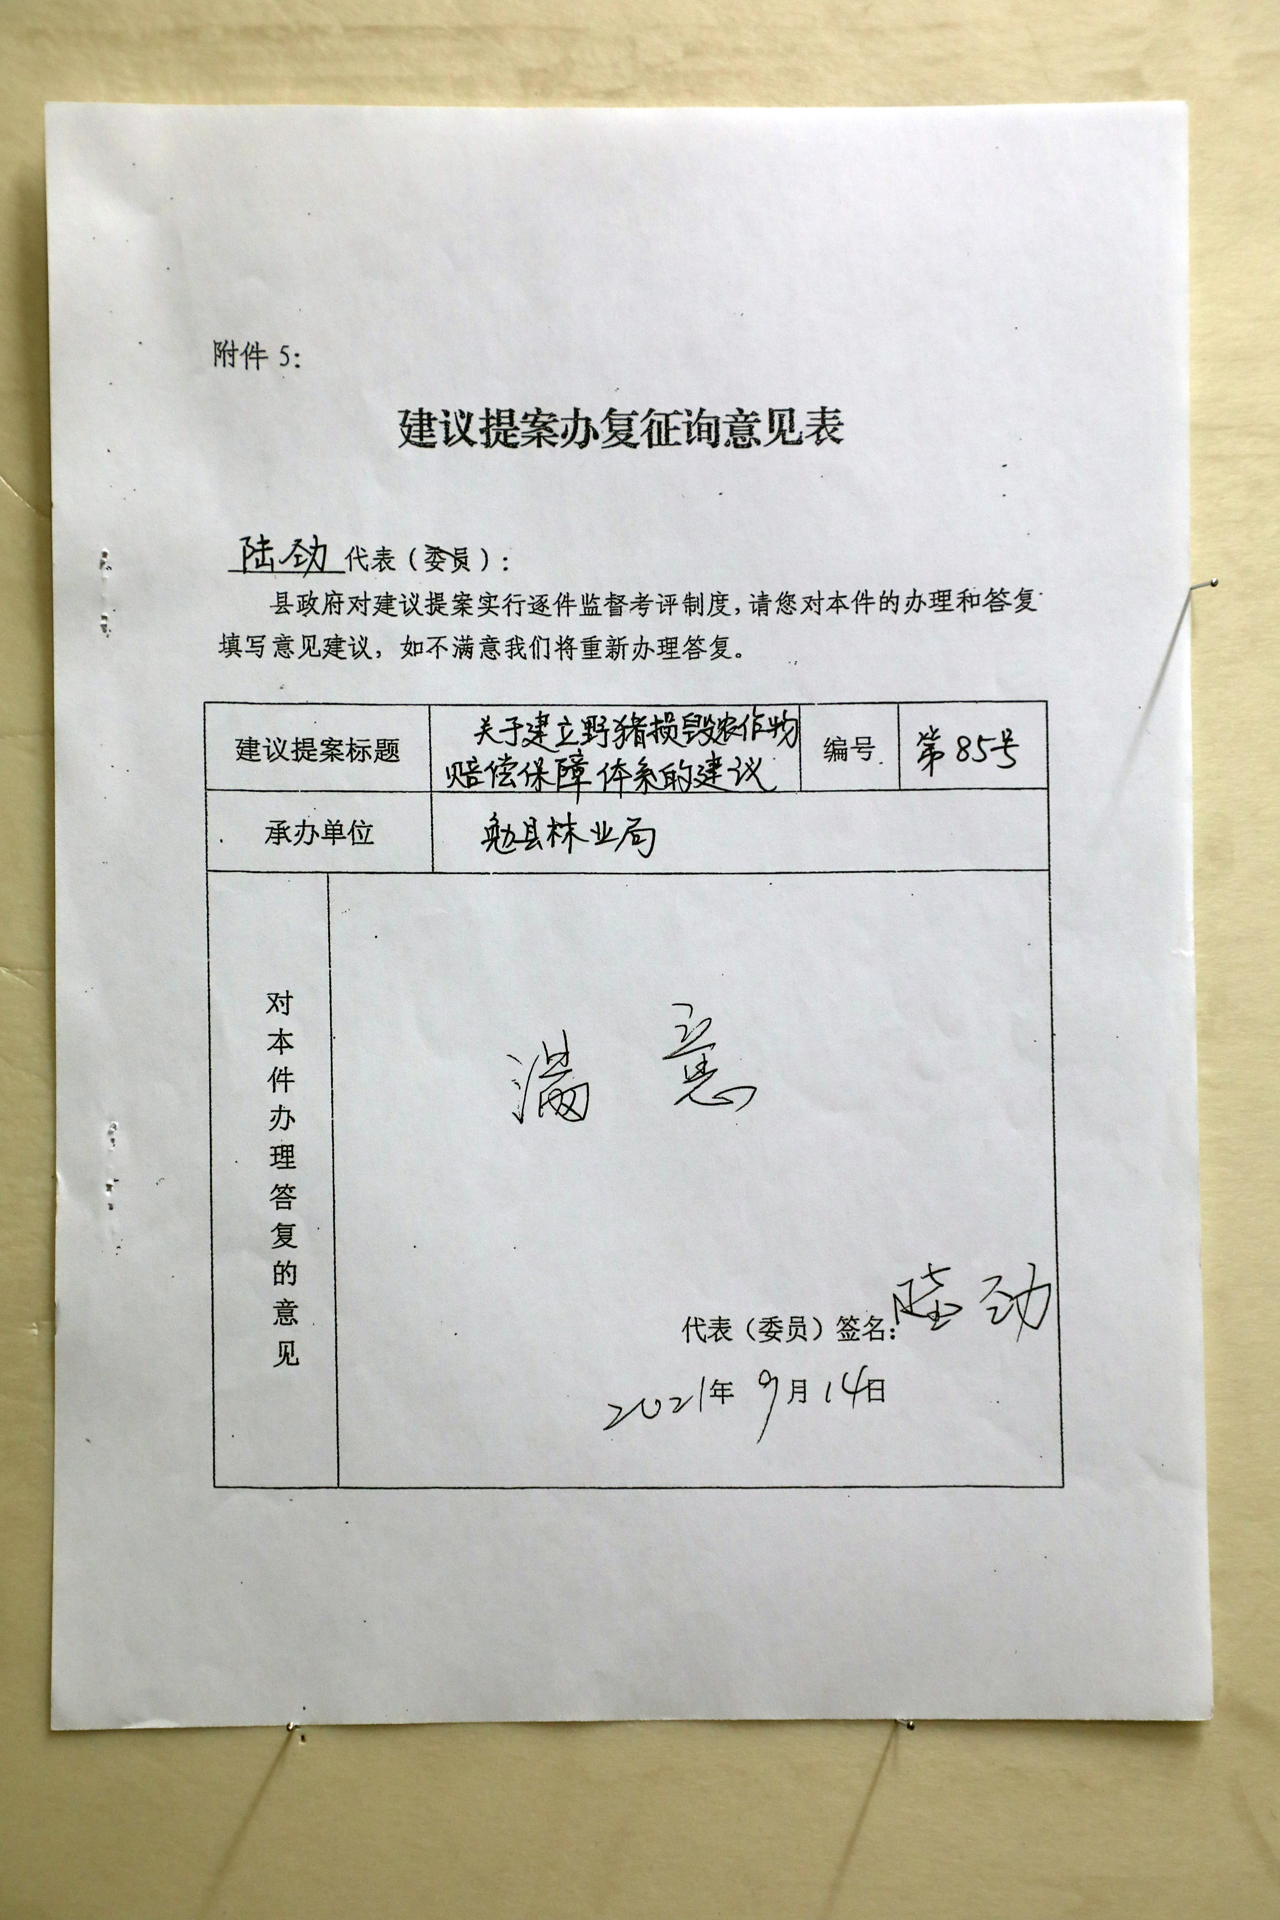 附件 5：
建议提案办复征询意见表
陆劲代表（委员）：
县政府对建议提案实行逐件监督考评制度，请您对本件的办理和答复
填写意见建议，如不满意我们将重新办理答复。
建议提案标题
关于建立野猪损毁农作物
赔偿保障体系的建议
编号
第85号
承办单位
勉县林业局
对本件办理答复的意见
满意
代表（委员）签名：陆劲
2021年9月14日